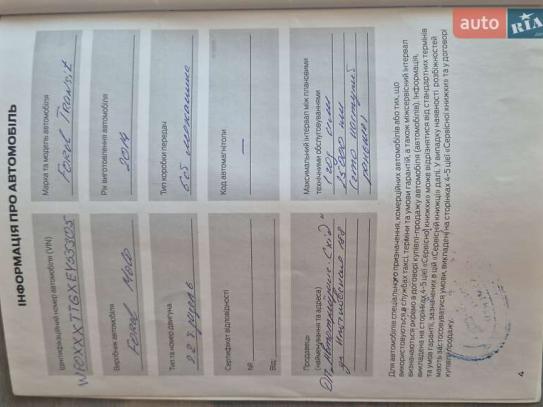 auto
RIA
ІНФОРМАЦІЯ ПРО АВТОМОБІЛЬ
Ідентифікаційний номер автомобіля (VIN)
Марка та модель автомобіля
Ford Transit
Виробник автомобіля
Ford
Рік виготовлення автомобіля
2014
Тип та номер двигуна
2.2
Тип коробки передач
6ст механіка
Сертифікат відповідності
№
Від
Код автомагнітоли
—
Продавець
(найменування та адреса)
Максимальний інтервал між плановими
технічними обслуговуваннями
1 рік
15000 км
Для автомобілів спеціального призначення, комерційних автомобілів або тих, що
використовуються в службах таксі, терміни та умови гарантій, а також міжсервісний інтервал
визначаються окремо в договорі купівлі-продажу автомобіля (автомобілів). Інформація,
викладена на сторінках 4-5 цієї «Сервісної книжки» може відрізнятися від стандартних термінів
та умов гарантії, зазначених в цій «Сервісній книжці» далі. У випадку наявності розбіжностей
мають застосовуватися умови, викладені на сторінках 4-5 цієї «Сервісної книжки» та у договорі
купівлі-продажу.
4